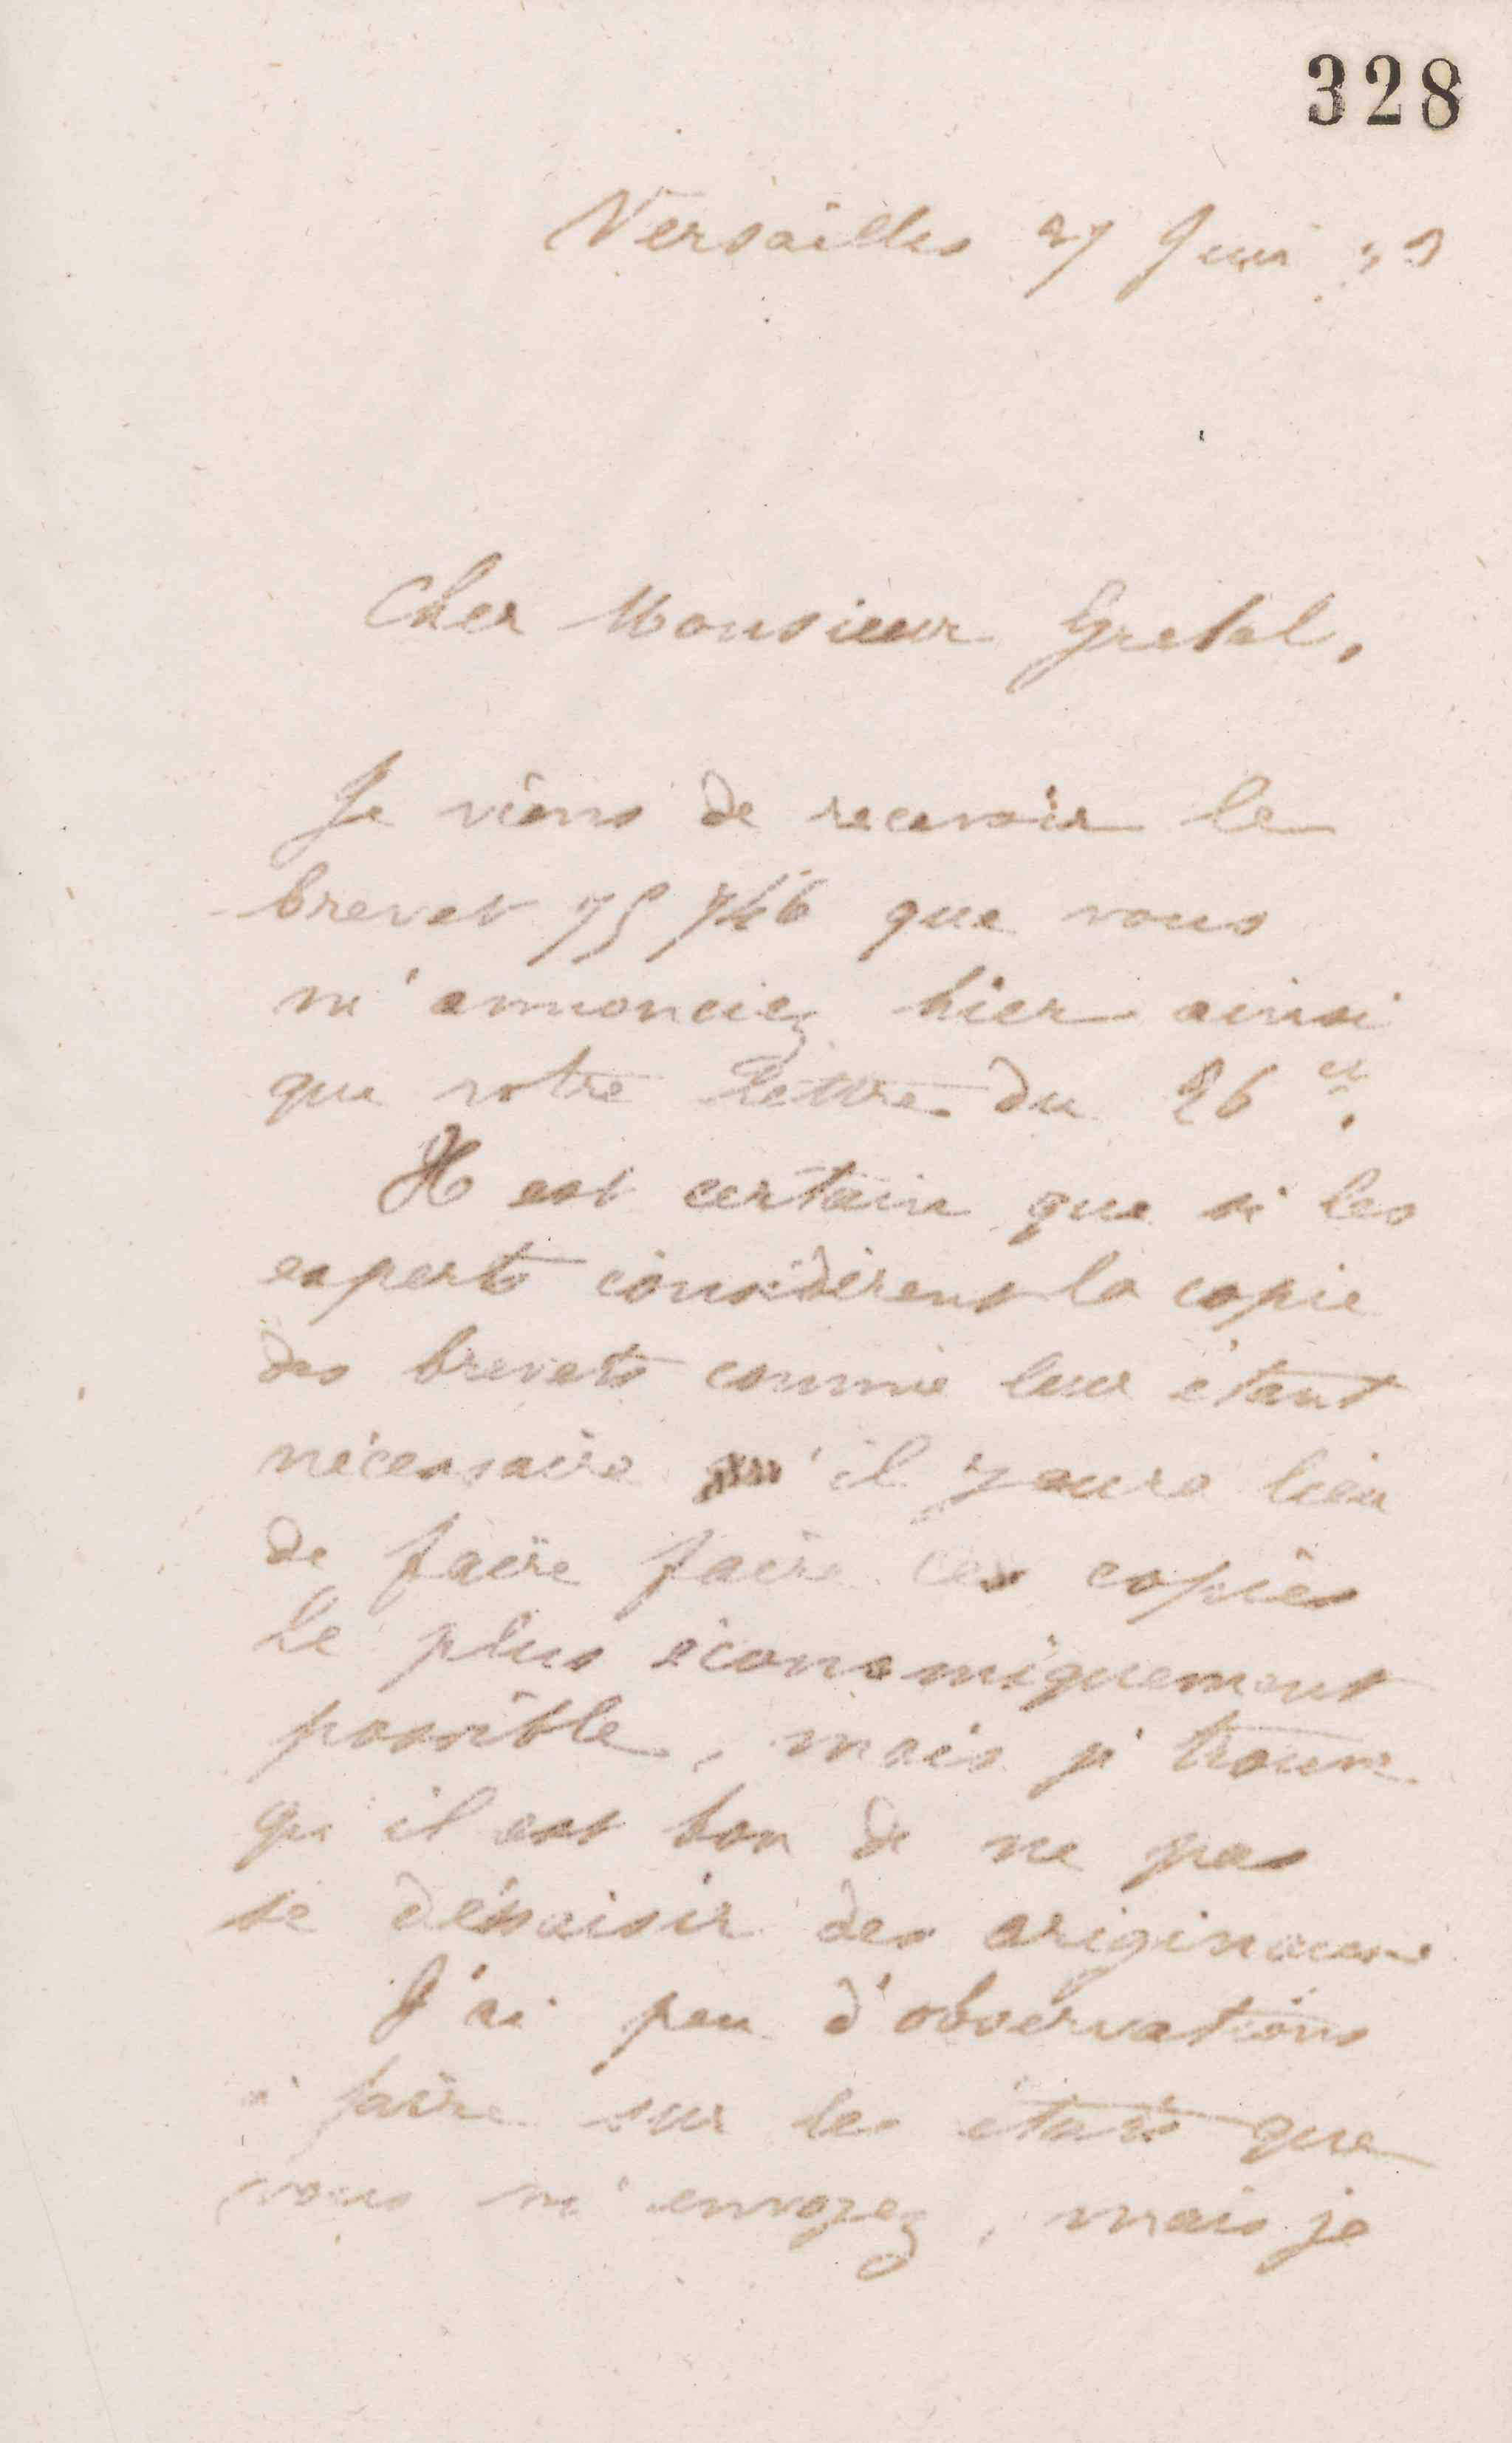 328
Versailles 27 Juin
Cher Monsieur Grebel,
Je viens de recevoir le
brevet 75 746 que vous
m'annonciez hier ainsi
que votre lettre du 26 ct.
Il est certain que si les
experts considèrent la copie
des brevets comme leur étant
nécessaire qu'il y aura lieu
de faire faire ces copies
le plus économiquement
possible, mais je trouve
qu'il est bon de ne pas
se déssaisir des originaux
J'ai peu d'observations
à faire sur les états que
vous m'envoyez, mais je